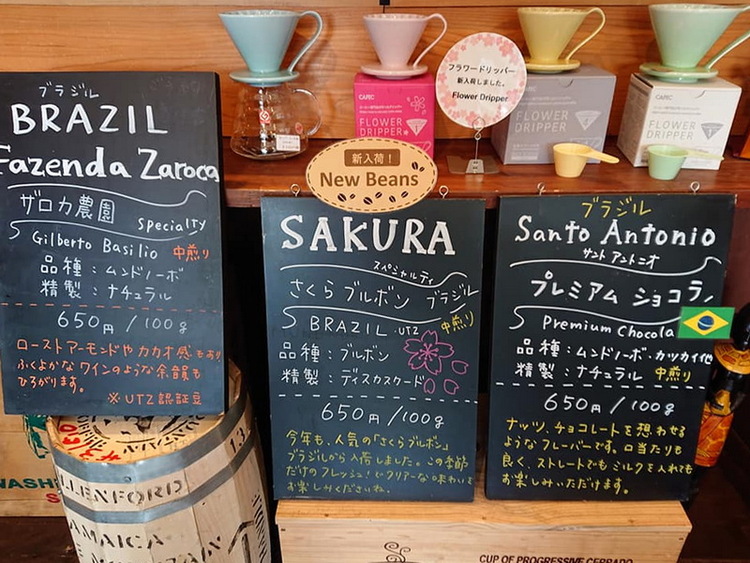 ブラジル
BRAZIL
Fazenda Zaroca
ザロカ農園
Specialty
Gilberto Basilio 中煎り
品種：ムンドノーボ
精製：ナチュラル
650円/100g
ローストアーモンドやカカオ感もあり
ふくよかなワインのような余韻も
ひろがります。
※UTZ認証豆
新入荷！
New Beans
SAKURA
スペシャルティ
さくらブルボン ブラジル
BRAZIL UTZ 中煎り
品種：ブルボン
精製：ディスカスケード
650円/100g
今年も、人気の「さくらブルボン」
ブラジルから入荷しました。この季節
だけのフレッシュ！クリアーな味わいを
お楽しみくださいね。
ブラジル
Santo Antonio
サント アントニオ
プレミアム ショコラ
Premium Chocola
品種：ムンドノーボ・カツカイ他
精製：ナチュラル 中煎り
650円/100g
ナッツ、チョコレートを想わせる
ようなフレーバーです。口当たりも
良く、ストレートでもミルクを入れても
お楽しみいただけます。
フラワードリッパー
新入荷しました。
Flower Dripper
CAFEC
FLOWER
DRIPPER
CAFEC
FLOWER
DRIPPER
CAFEC
FLOWER
DRIPPER
LLENFORD
JAMAICA
CUP OF PROGRESSIVE CERRADO